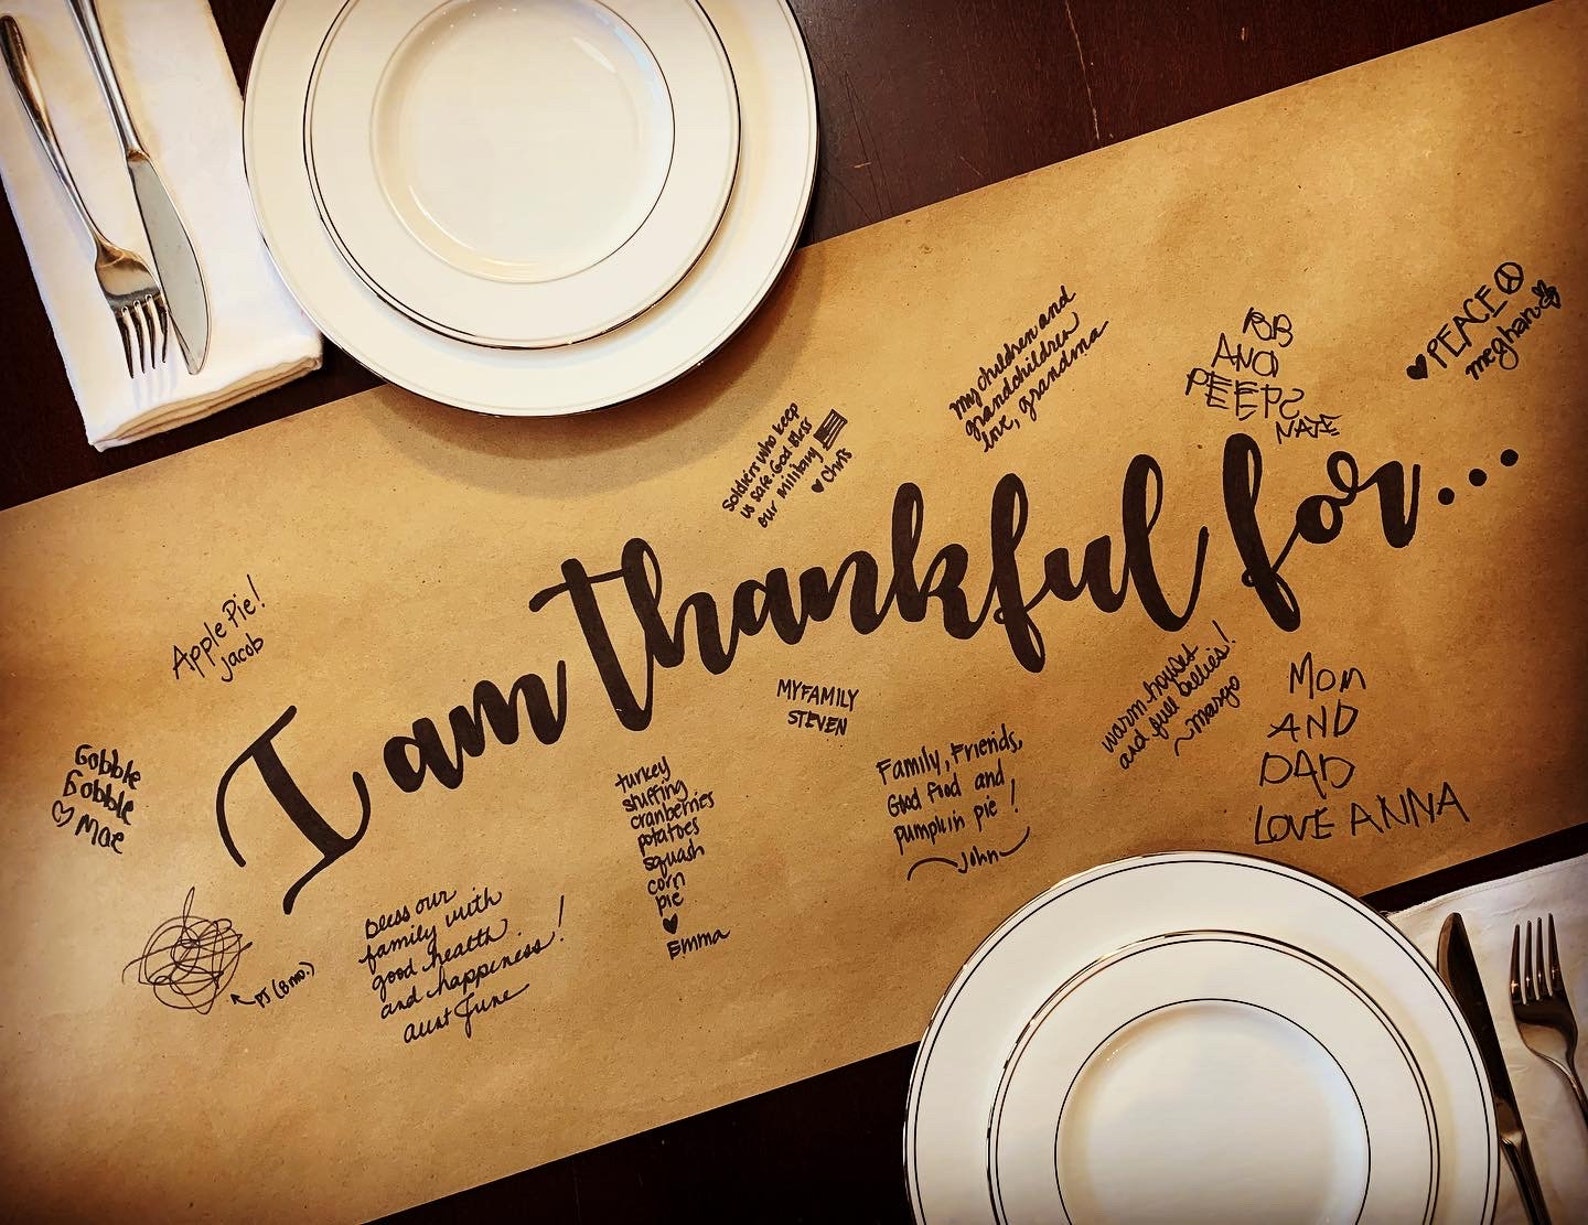 I am thankful for...
♥ PEACE ☮
meghan
BB
AND
PEEPS
NATE
My children and
grandchildren
love, grandma
Soldiers who keep
us safe. God Bless
our military
♥ Chris
Apple Pie!
Jacob
Gobble
Gobble
♡ Mae
PJ (8 mo.)
Bless our
family with
good health
and happiness!
Aunt June
turkey
stuffing
cranberries
potatoes
squash
corn
pie
♥
Emma
MY FAMILY
STEVEN
Family, Friends,
Good Food and
pumpkin pie!
~John~
warm houses
and full bellies!
~margo
Mom
AND
DAD
LOVE ANNA